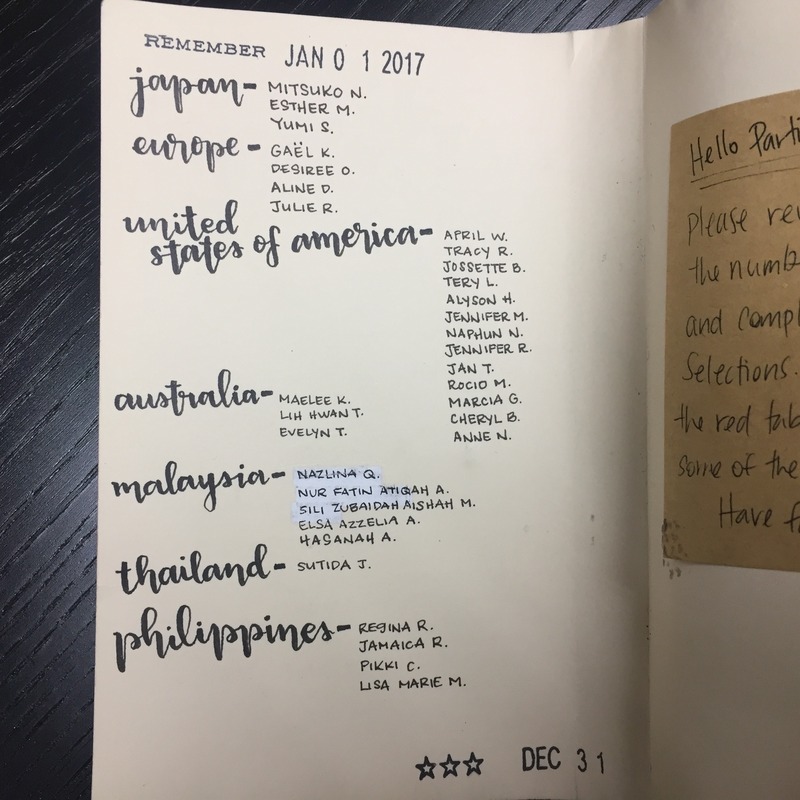 REMEMBER JAN 0 1 2017
japan- MITSUKO N.
ESTHER M.
YUMI S.
europe- GAËL K.
DESIREE O.
ALINE D.
JULIE R.
united
states of america- APRIL W.
TRACY R.
JOSSETTE B.
TERY L.
ALYSON H.
JENNIFER M.
NAPHUN N.
JENNIFER R.
JAN T.
ROCIO M.
MARCIA G.
CHERYL B.
ANNE N.
australia- MAELEE K.
LIH HWAN T.
EVELYN T.
malaysia- NAZLINA Q.
NUR FATIN ATIQAH A.
SILI ZUBAIDAH AISHAH M.
ELSA AZZELIA A.
HASANAH A.
thailand- SUTIDA J.
philippines- REGINA R.
JAMAICA R.
PIKKI C.
LISA MARIE M.
☆☆☆ DEC 3 1
Hello Parti
please rev
the numb
and compl
selections.
the red tab
some of the
Have f